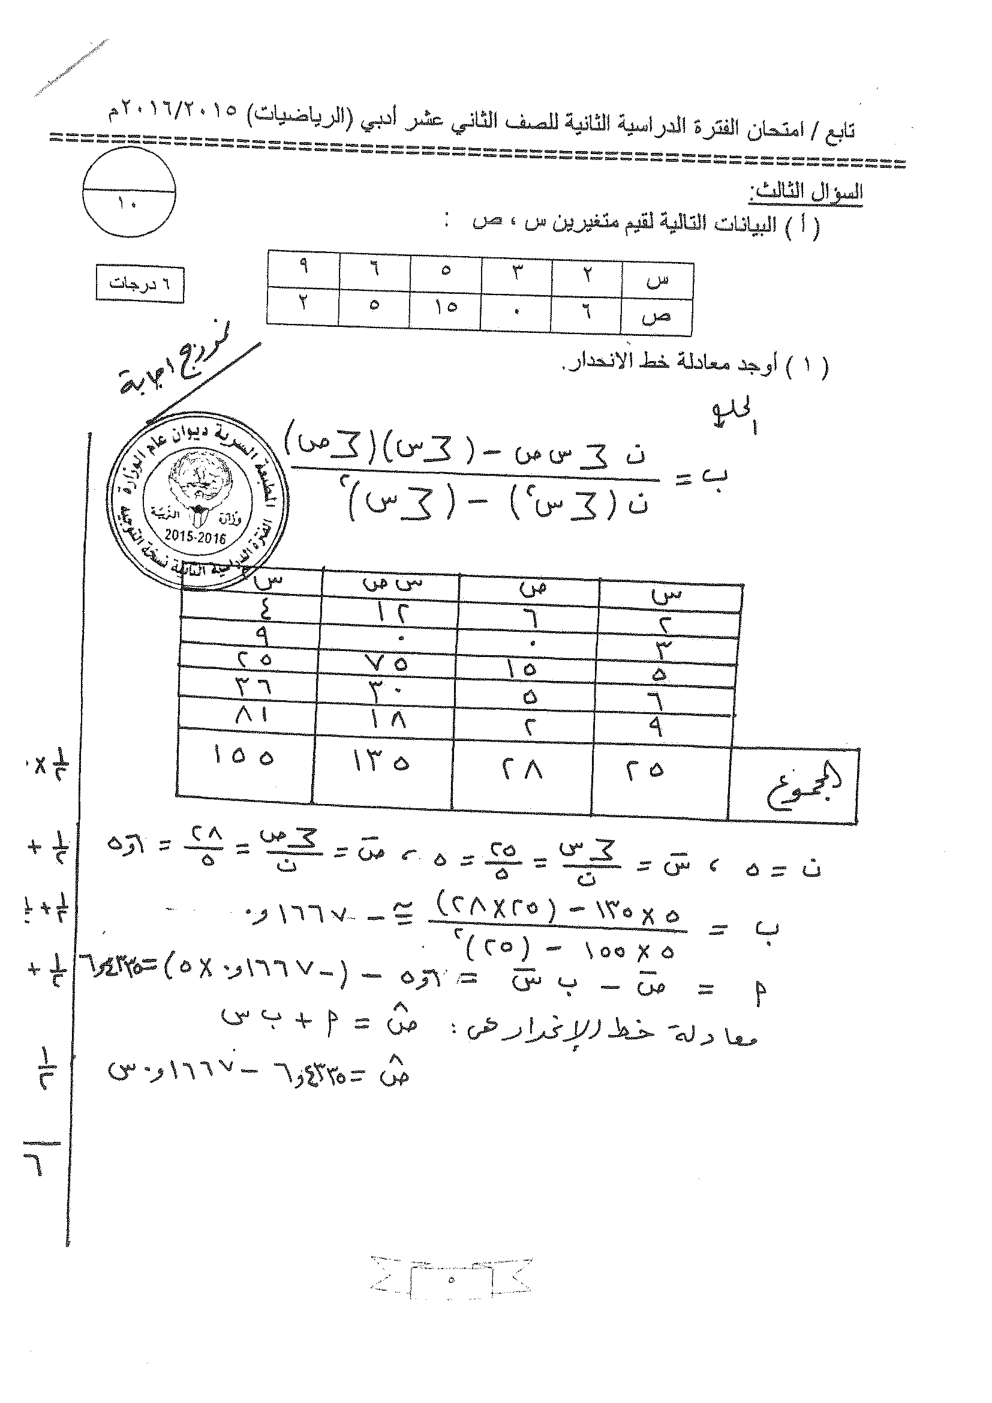 تابع / امتحان الفترة الدراسية الثانية للصف الثاني عشر أدبي (الرياضيات) ٢٠١٦/٢٠١٥م
السؤال الثالث:
١٠
( أ ) البيانات التالية لقيم متغيرين س ، ص :
٦ درجات
س ٢ ٣ ٥ ٦ ٩
ص ٦ ٠ ١٥ ٥ ٢
( ١ ) أوجد معادلة خط الانحدار.
نموذج اجابة
الحل
ب = (ن ∑ س ص − (∑ س)(∑ ص)) / (ن (∑ س٢) − (∑ س)٢)
المطبعة السرية ديوان عام الوزارة
وزارة التربية
2015-2016
الفترة الدراسية الثانية نسخة التوجيه
س ص س ص س
٢ ٦ ١٢ ٤
٣ ٠ ٠ ٩
٥ ١٥ ٧٥ ٢٥
٦ ٥ ٣٠ ٣٦
٩ ٢ ١٨ ٨١
المجموع ٢٥ ٢٨ ١٣٥ ١٥٥
ن = ٥ ، س̄ = ∑ س / ن = ٢٥ / ٥ = ٥ ، ص̄ = ∑ ص / ن = ٢٨ / ٥ = ٥,٦ ١/٢ +
ب = (٥ × ١٣٥ − (٢٥ × ٢٨)) / (٥ × ١٥٥ − (٢٥)٢) ≅ − ٠,١٦٦٧
م = ص̄ − ب س̄ = ٥,٦ − (− ٠,١٦٦٧ × ٥) = ٦,٤٣٣٥ ١/٢ +
معادلة خط الإنحدار هي: ص̂ = م + ب س
ص̂ = ٦,٤٣٣٥ − ٠,١٦٦٧ س ١/٢
٦
٥